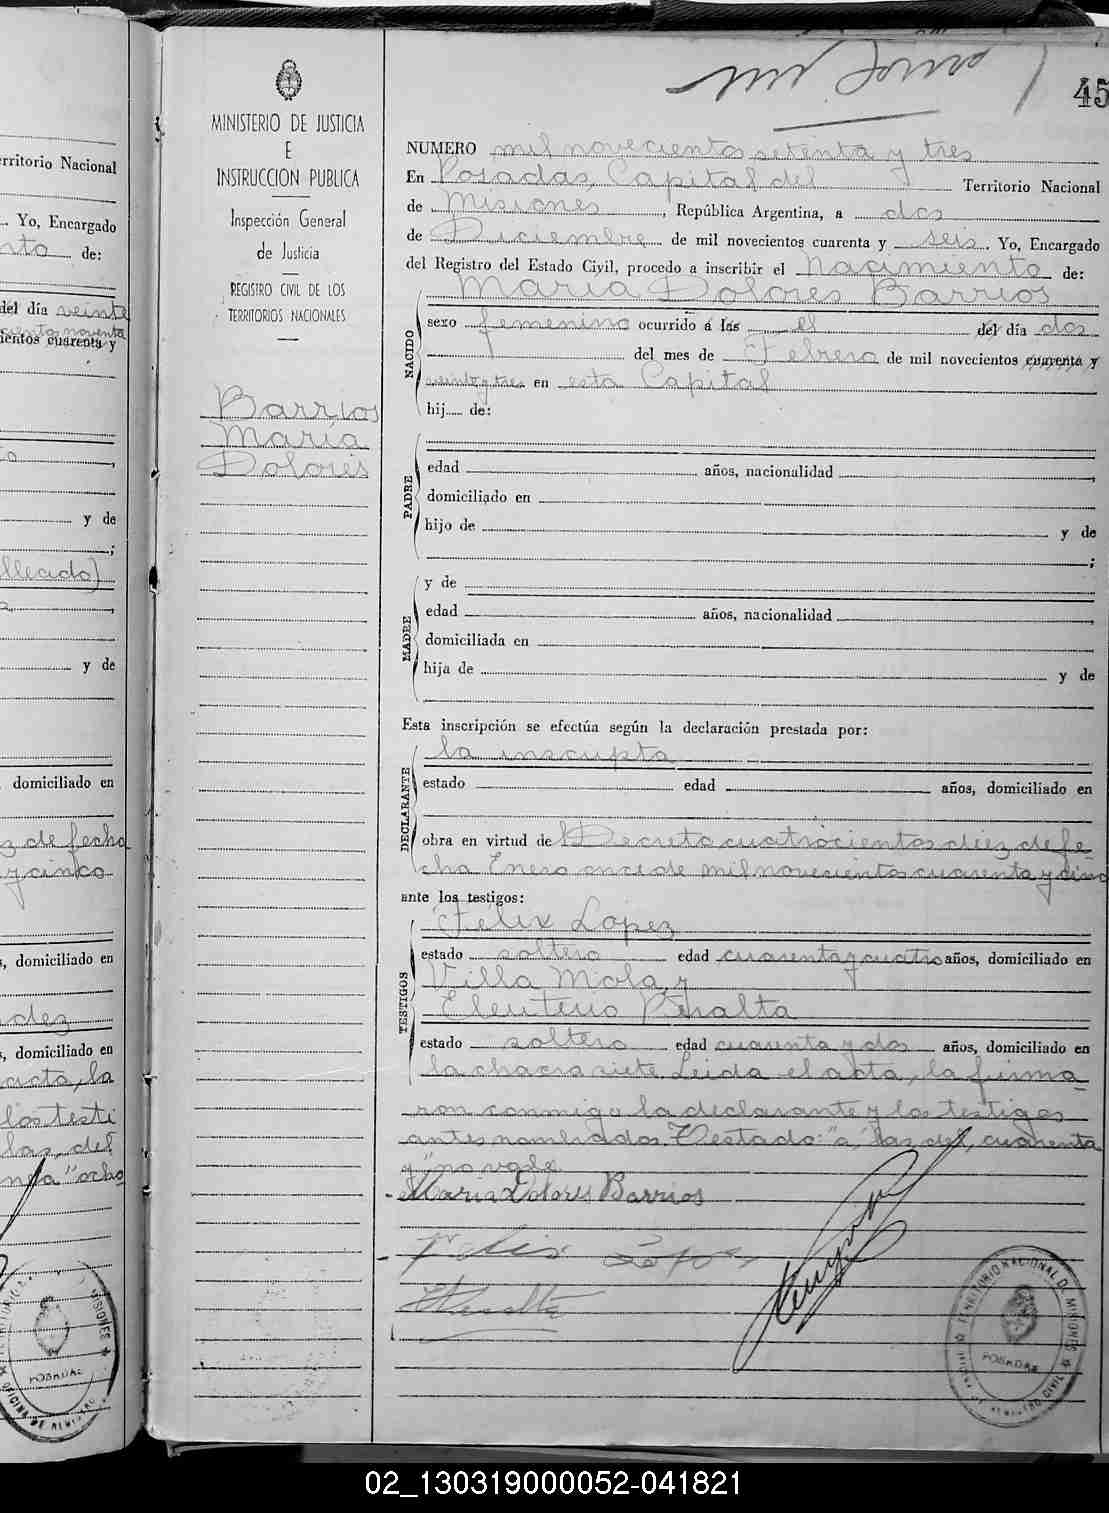 45
MINISTERIO DE JUSTICIA
E
INSTRUCCION PUBLICA
Inspección General
de Justicia
REGISTRO CIVIL DE LOS
TERRITORIOS NACIONALES
Barrios
María
Dolores
NUMERO mil novecientos setenta y tres
En Posadas, Capital del Territorio Nacional
de Misiones, República Argentina, a dos
de Diciembre de mil novecientos cuarenta y seis. Yo, Encargado
del Registro del Estado Civil, procedo a inscribir el Nacimiento de:
María Dolores Barrios
NACIDO
sexo femenino ocurrido á las el del día dos
del mes de Febrero de mil novecientos cuarenta y
veinte y tres en esta Capital
hij de:
PADRE
edad años, nacionalidad ,
domiciliado en
hijo de y de
;
MADRE
y de
edad años, nacionalidad
domiciliada en
hija de y de
Esta inscripción se efectúa según la declaración prestada por:
DECLARANTE
la inscripta
estado edad años, domiciliado en
obra en virtud de Decreto cuatrocientos diez de fe-
cha Enero once de mil novecientos cuarenta y cinco
ante los testigos:
TESTIGOS
Félix Lopez
estado soltero edad cuarenta y cuatro años, domiciliado en
Villa Mola, y
Eleuterio Peralta
estado soltero edad cuarenta y dos años, domiciliado en
la chacra siete. Leida el acta, la firma-
ron conmigo la declarante y los testigos
antes nombrados. Testado: "a las del, cuarenta
y" no vale.
Maria Dolores Barrios
Felix Lopez
EPeralta
TERRITORIO NACIONAL DE MISIONES
OFICINA DE REGISTRO CIVIL
POSADAS
erritorio Nacional
. Yo, Encargado
nto de:
del día veinte
ientos cuarenta y
,
y de
;
lleado)
,
y de
domiciliado en
z de fecha
y cinco
, domiciliado en
dez
, domiciliado en
acta, la
los testi
las, del
"ocho
POSADAS
02_130319000052-041821